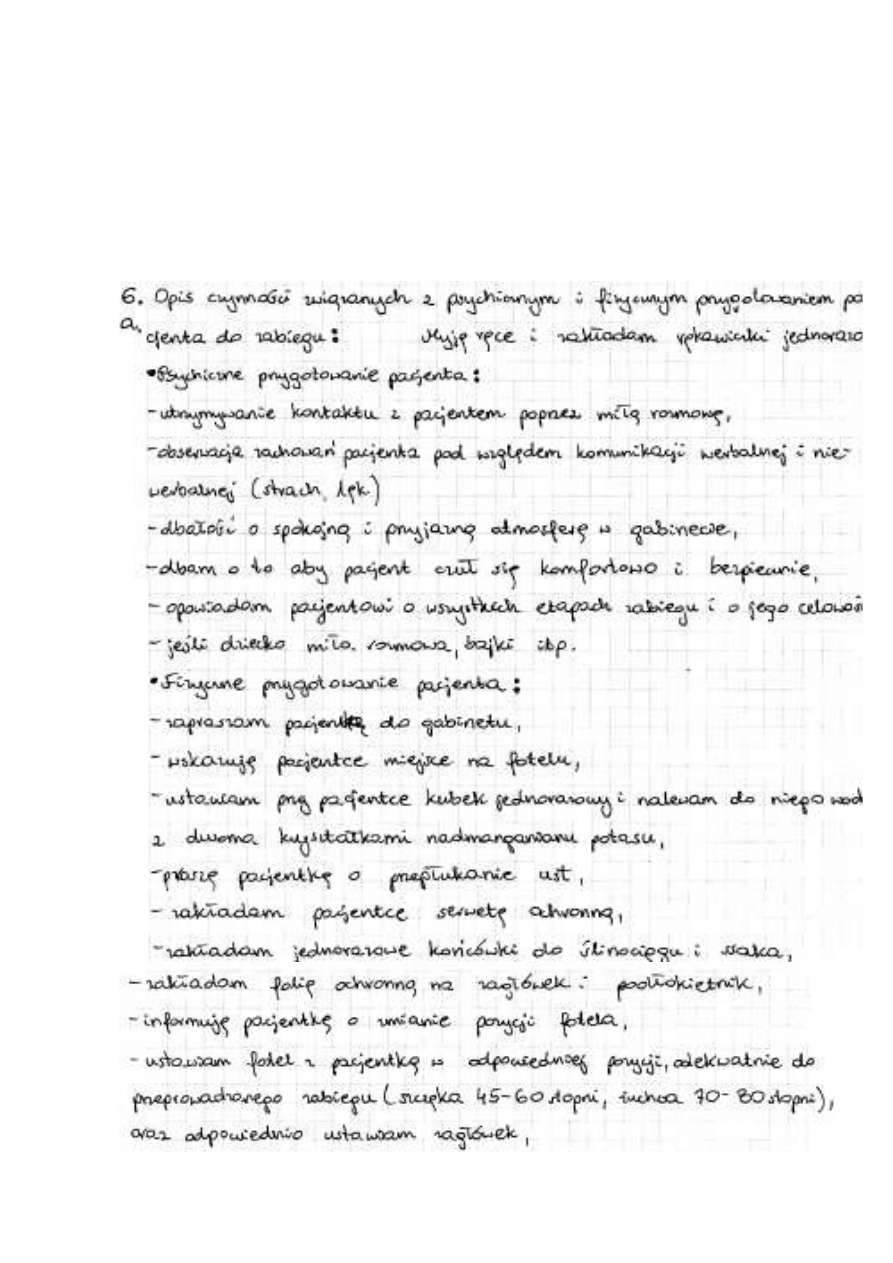 6. Opis czynności związanych z psychicznym i fizycznym przygotowaniem pa
a, cjenta do zabiegu: Myję ręce i zakładam rękawiczki jednorazo
•Psychiczne przygotowanie pacjenta:
-utrzymywanie kontaktu z pacjentem poprzez miłą rozmowę,
-obserwacja zachowań pacjenta pod względem komunikacji werbalnej i nie-
werbalnej (strach, lęk)
-dbałość o spokojną i przyjazną atmosferę w gabinecie,
-dbam o to aby pacjent czuł się komfortowo i bezpiecznie,
- opowiadam pacjentowi o wszystkich etapach zabiegu i o jego celowoś
- jeśli dziecko miła rozmowa, bajki itp.
•Fizyczne przygotowanie pacjenta:
-zapraszam pacjentkę do gabinetu,
- wskazuję pacjentce miejsce na fotelu,
-ustawiam przy pacjentce kubek jednorazowy i nalewam do niego wod
z dwoma kryształkami nadmanganianu potasu,
-proszę pacjentkę o przepłukanie ust,
- zakładam pacjentce serwetę ochronną,
-zakładam jednorazowe końcówki do ślinociągu i ssaka,
- zakładam folię ochronną na zagłówek i podłokietnik,
-informuję pacjentkę o zmianie pozycji fotela,
- ustawiam fotel z pacjentką w odpowiedniej pozycji, adekwatnie do
przeprowadzanego zabiegu (szczęka 45-60 stopni, żuchwa 70-80 stopni),
oraz odpowiednio ustawiam zagłówek,